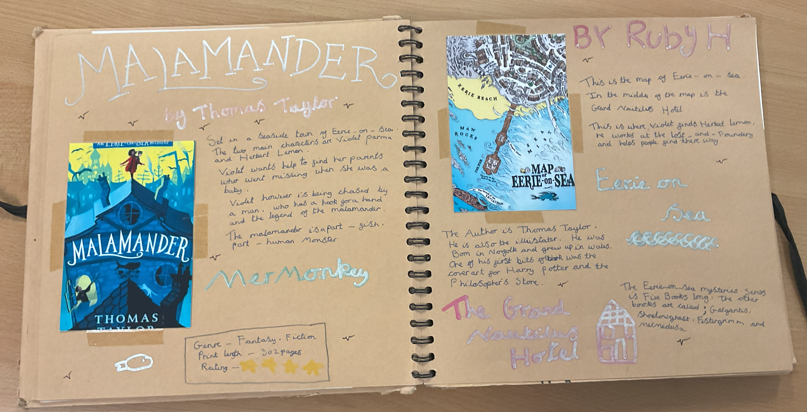 MALAMANDER
by Thomas Taylor
AN EERIE-ON-SEA MYSTERY
MALAMANDER
THOMAS
TAYLOR
Set in a seaside town of Eerie-on-Sea
The two main characters are Violet Parma
and Herbert Lemon.
Violet wants help to find her parents
who went missing when she was a
baby.
Violet however is being chased by
a man, who has a hook for a hand
and the legend of the malamander.
The malamander is a part-fish,
part-human Monster
MerMonkey
Genre - Fantasy, Fiction
Print length - 302 pages
Rating -
BY RUBY H
EERIE BEACH
MAN
ROCKS
MAP
EERIE-ON-SEA
This is the map of Eerie-on-Sea
In the middle of the map is the
Grand Nautilus Hotel
This is where Violet finds Herbert Lemon.
He works at the lost-and-Foundery
and helps people find there way.
Eerie on
Sea
The Author is Thomas Taylor.
He is also be illustrator. He was
Born in Norfolk and grew up in wales.
One of his first bits of work was the
cover art for Harry Potter and the
Philosopher's Stone.
The Grand
Nautilus
Hotel
The Eerie-on-sea mysteries Series
is Five Books long. The other
books are called: Gargantis,
Shadowghast, Festergrimm, and
mermedusa.